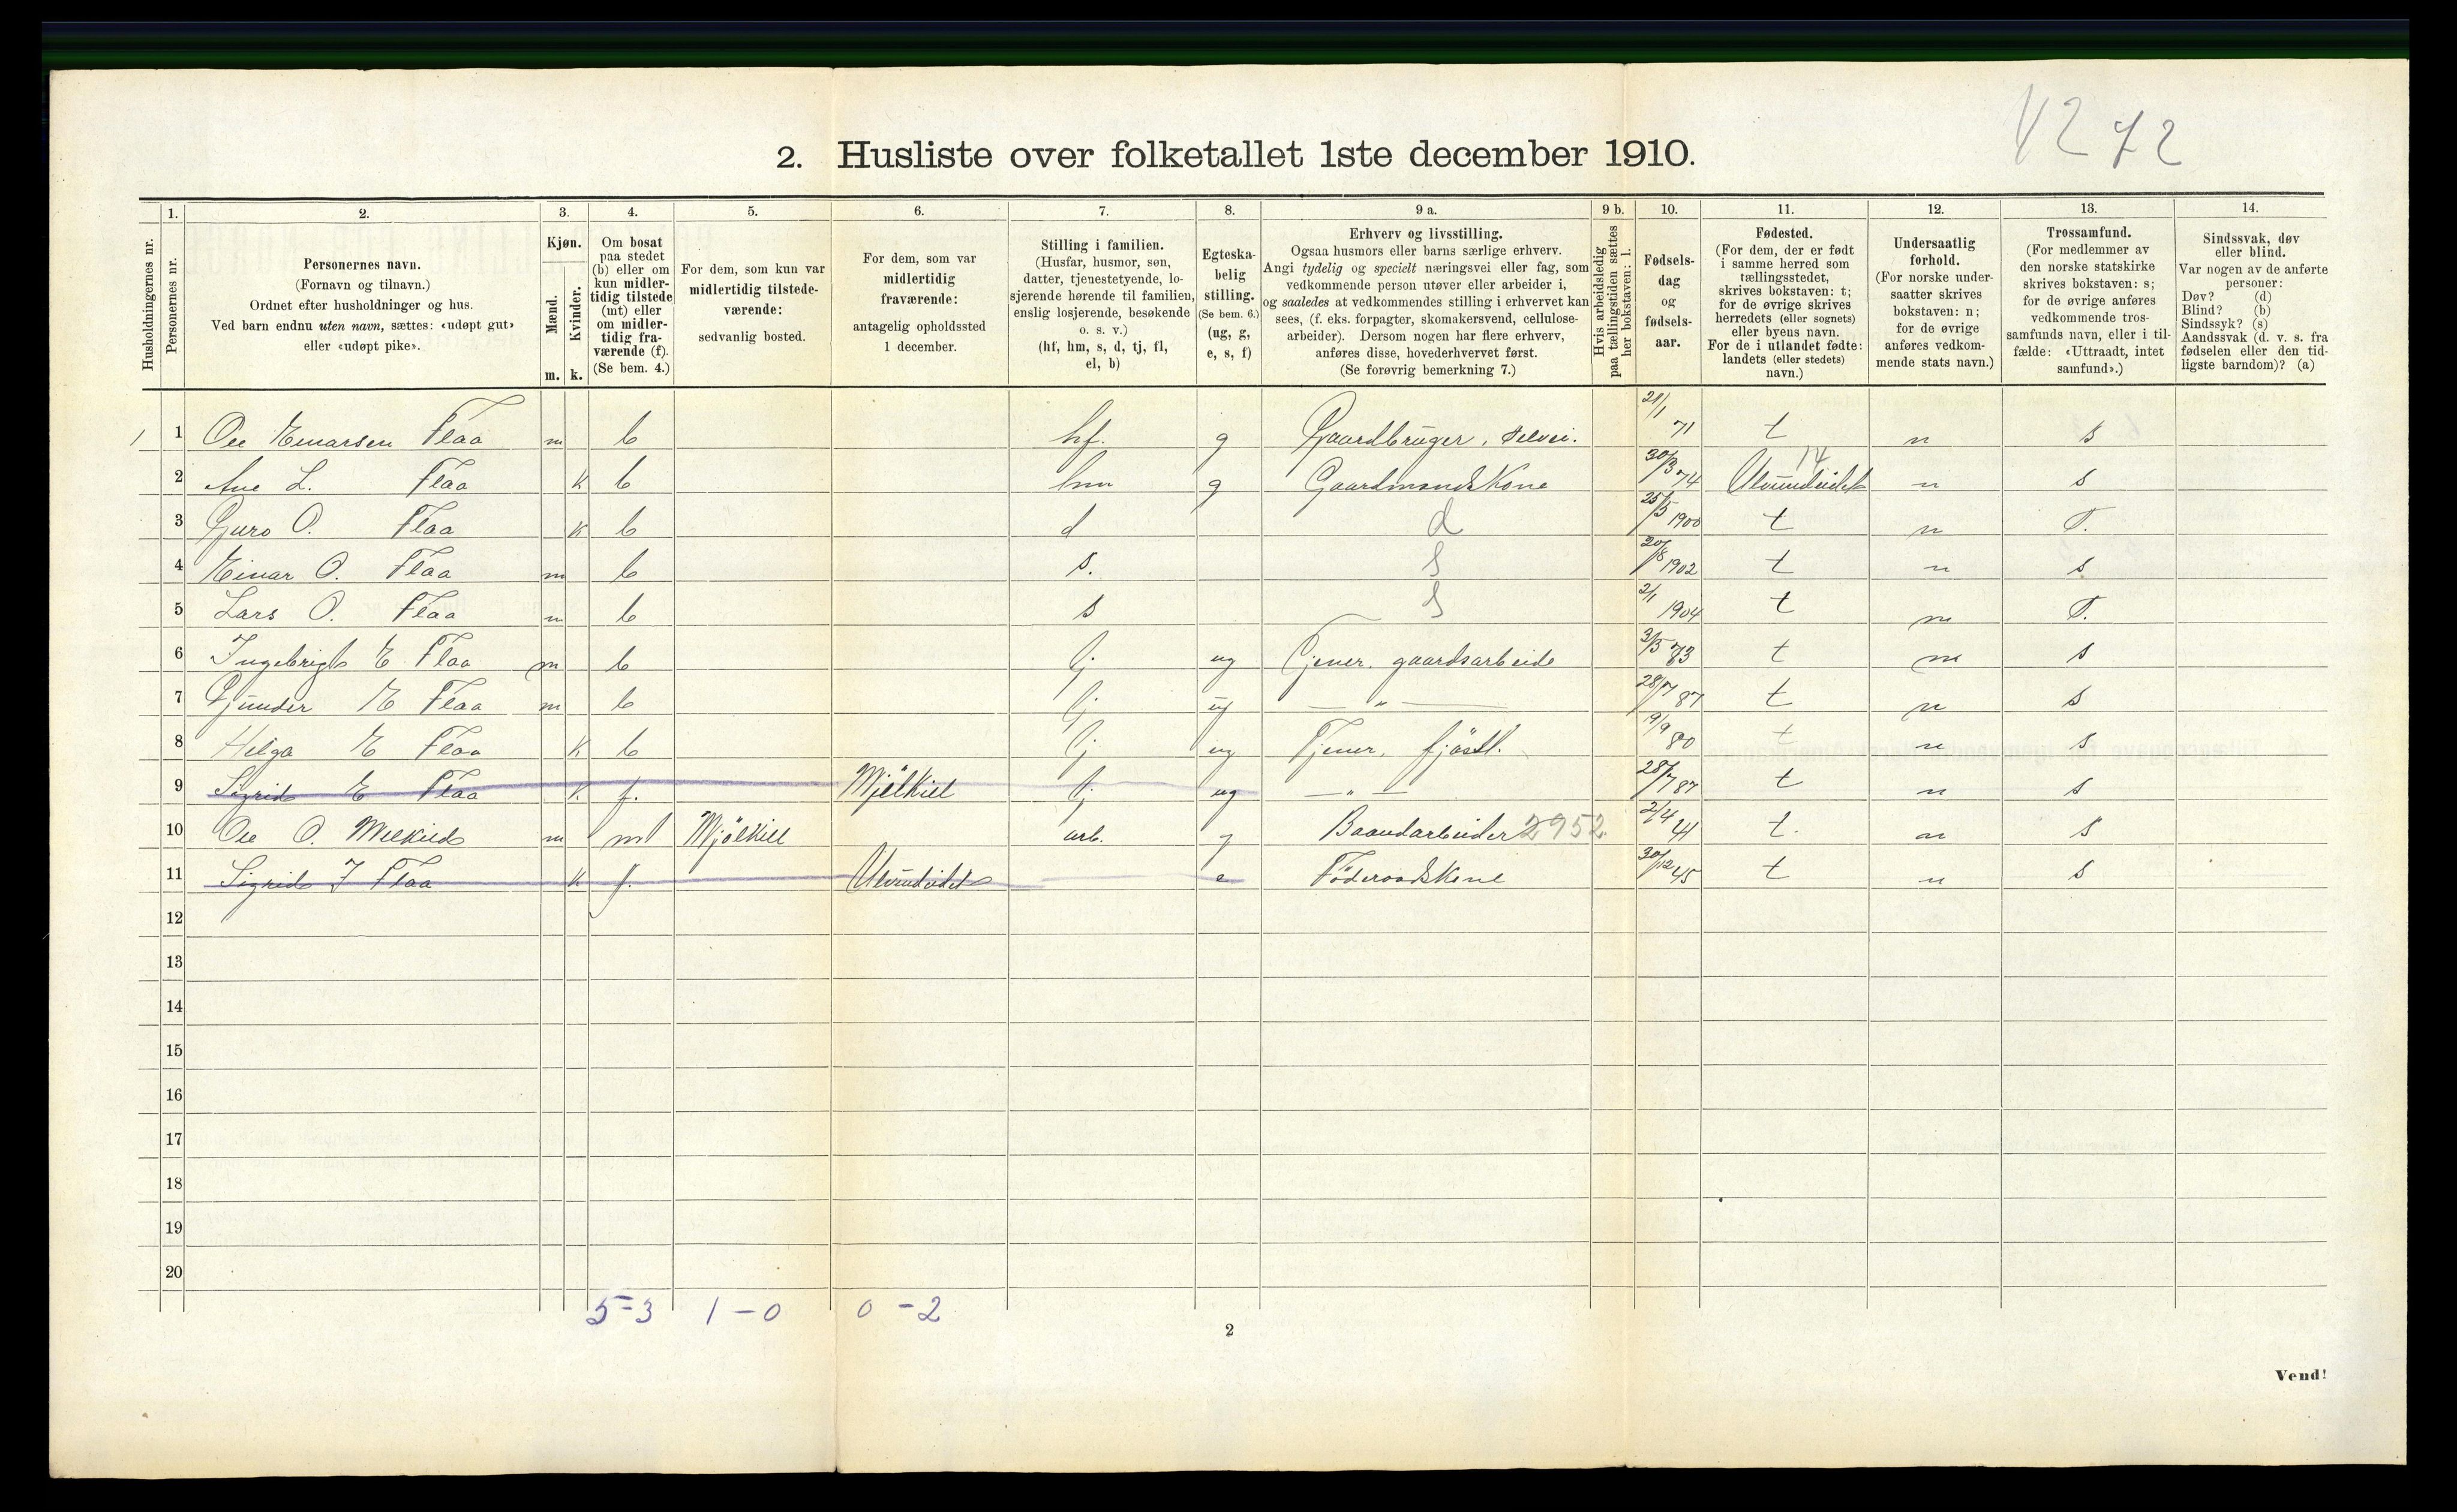 V272
2. Husliste over folketallet 1ste december 1910.
Husholdningernes nr.
1. Personernes nr.
2. Personernes navn.
(Fornavn og tilnavn.)
Ordnet efter husholdninger og hus.
Ved barn endnu uten navn, sættes: «udøpt gut»
eller «udøpt pike».
3. Kjøn.
Mænd. Kvinder.
m. k.
4. Om bosat
paa stedet
(b) eller om
kun midler-
tidig tilstede
(mt) eller
om midler-
tidig fra-
værende (f).
(Se bem. 4.)
5. For dem, som kun var
midlertidig tilstede-
værende:
sedvanlig bosted.
6. For dem, som var
midlertidig
fraværende:
antagelig opholdssted
1 december.
7. Stilling i familien.
(Husfar, husmor, søn,
datter, tjenestetyende, lo-
sjerende hørende til familien,
enslig losjerende, besøkende
o. s. v.)
(hf, hm, s, d, tj, fl,
el, b)
8. Egteska-
belig
stilling.
(Se bem. 6.)
(ug, g,
e, s, f)
9 a. Erhverv og livsstilling.
Ogsaa husmors eller barns særlige erhverv.
Angi tydelig og specielt næringsvei eller fag, som
vedkommende person utøver eller arbeider i,
og saaledes at vedkommendes stilling i erhvervet kan
sees, (f. eks. forpagter, skomakersvend, cellulose-
arbeider). Dersom nogen har flere erhverv,
anføres disse, hovederhvervet først.
(Se forøvrig bemerkning 7.)
9 b. Hvis arbeidsledig
paa tællingstiden sættes
her bokstaven: l.
10. Fødsels-
dag
og
fødsels-
aar.
11. Fødested.
(For dem, der er født
i samme herred som
tællingsstedet,
skrives bokstaven: t;
for de øvrige skrives
herredets (eller sognets)
eller byens navn.
For de i utlandet fødte:
landets (eller stedets)
navn.)
12. Undersaatlig
forhold.
(For norske under-
saatter skrives
bokstaven: n;
for de øvrige
anføres vedkom-
mende stats navn.)
13. Trossamfund.
(For medlemmer av
den norske statskirke
skrives bokstaven: s;
for de øvrige anføres
vedkommende tros-
samfunds navn, eller i til-
fælde: «Uttraadt, intet
samfund».)
14. Sindssvak, døv
eller blind.
Var nogen av de anførte
personer:
Døv? (d)
Blind? (b)
Sindssyk? (s)
Aandssvak (d. v. s. fra
fødselen eller den tid-
ligste barndom)? (a)
1 1 Ole Einarsen Flaa m b hf. g Gaardbruger, selvei. 21/1 71 t n s
2 Ane L. Flaa k b hm g GaardmandsKone 30/3 74 14 Ulvundeidet n s
3 Guro O. Flaa k b d d 25/5 1900 t n S.
4 Einar O. Flaa m b s. S 20/8 1902 t n s
5 Lars O. Flaa m b s S 2/1 1904 t n S.
6 Ingebrigt E Flaa m b tj ug Tjener, gaardsarbeide 3/5 83 t n s
7 Gjunder E Flaa m b tj ug — " — 28/7 87 t n s
8 Helga E Flaa k b tj ug Tjener, fjöstl. 19/9 80 t n s
9 Sigrid E Flaa k f. Mjölkill tj ug — " — 28/7 87 t n s
10 Ole O. Melkild m mt Mjölkill arb. g Baandarbeider 2952. 2/4 41 t. n s
11 Sigrid I Flaa k f. Ulvundeidet e FöderaadsKone 30/12 45 t n s
12
13
14
15
16
17
18
19
20
5-3 1-0 0-2
2
Vend!